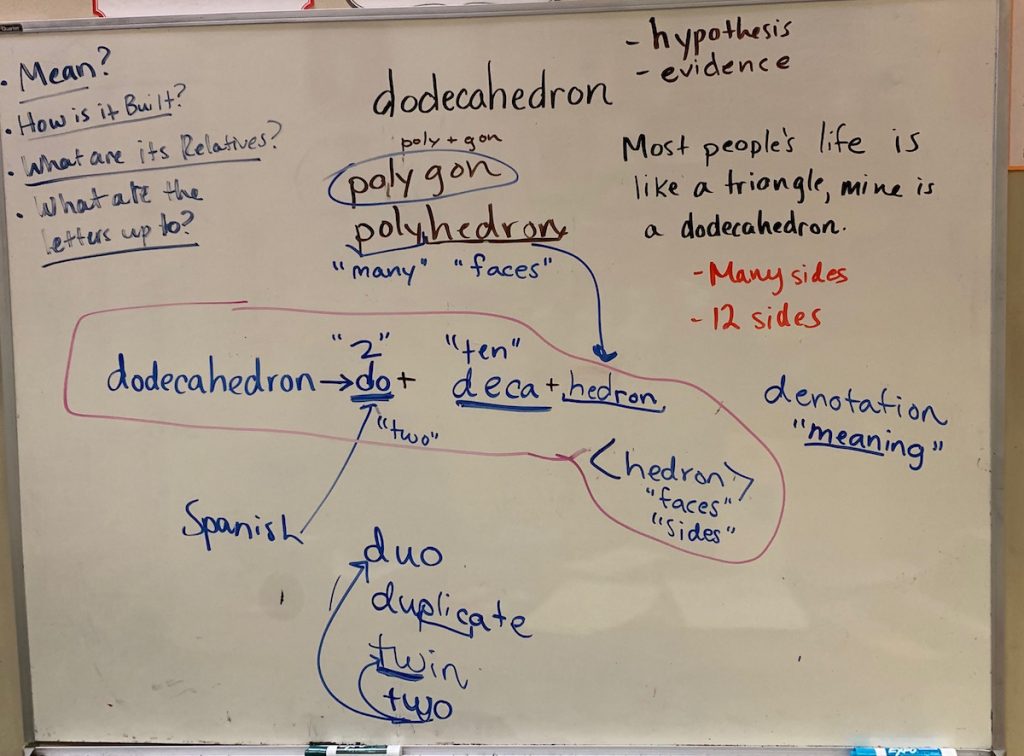 • Mean?
• How is it Built?
• What are its Relatives?
• What are the
letters up to?
dodecahedron
- hypothesis
- evidence
poly + gon
polygon
polyhedron
"many" "faces"
Most people's life is
like a triangle, mine is
a dodecahedron.
- Many sides
- 12 sides
"2" "ten"
dodecahedron → do + deca + hedron
"two"
<hedron>
"faces"
"sides"
denotation
"meaning"
Spanish
duo
duplicate
twin
two
EXPO